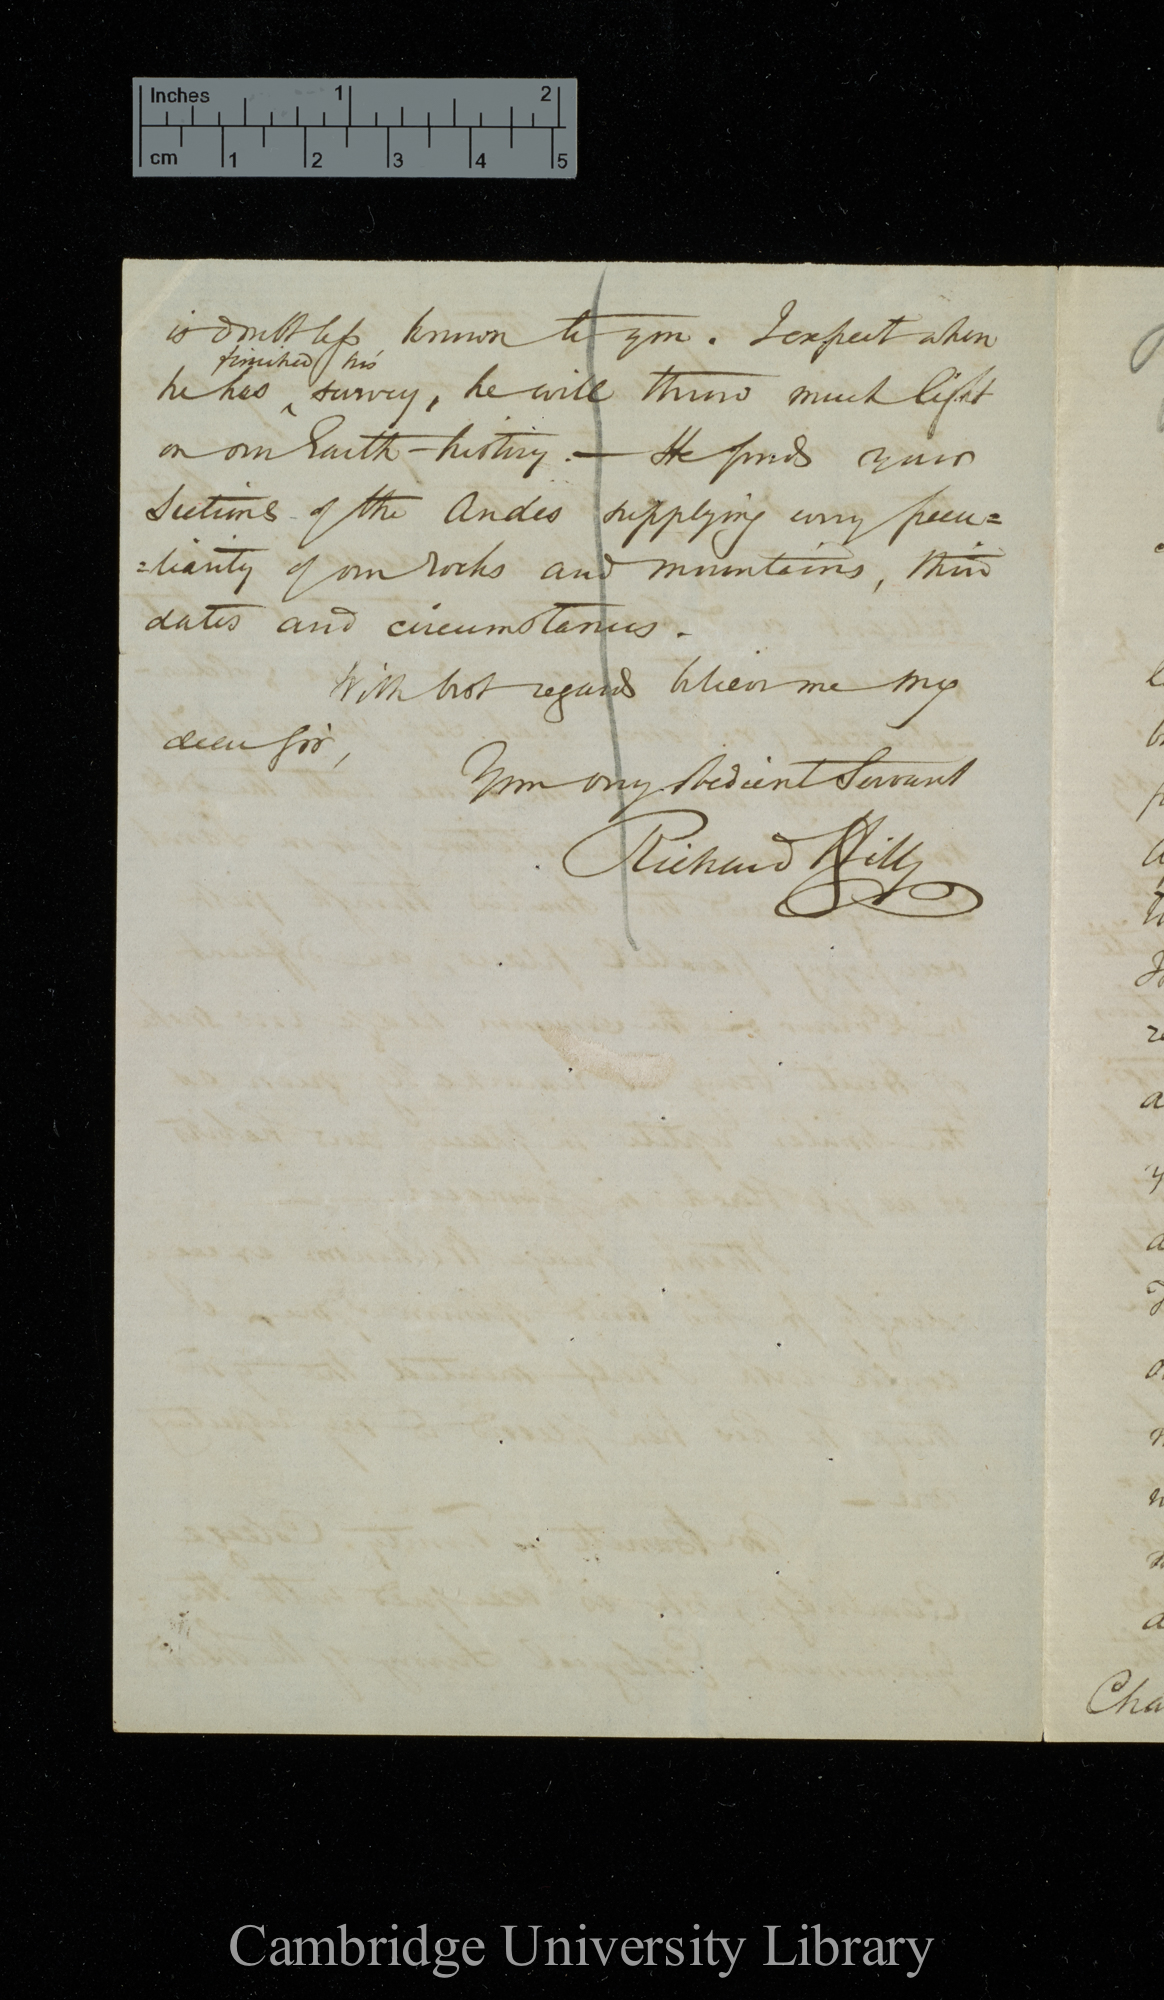 Inches 1 2
cm 1 2 3 4 5
is doubtless known to you. I expect when
finished his
he has ^ survey, he will throw much light
on our Earth-history. — He finds your
Sections of the Andes supplying every pecu=
=liarity of our rocks and mountains, their
dates and circumstances.
With best regards believe me my
dear Sir,
Your very obedient Servant
Richard Hill
Cha
Cambridge University Library